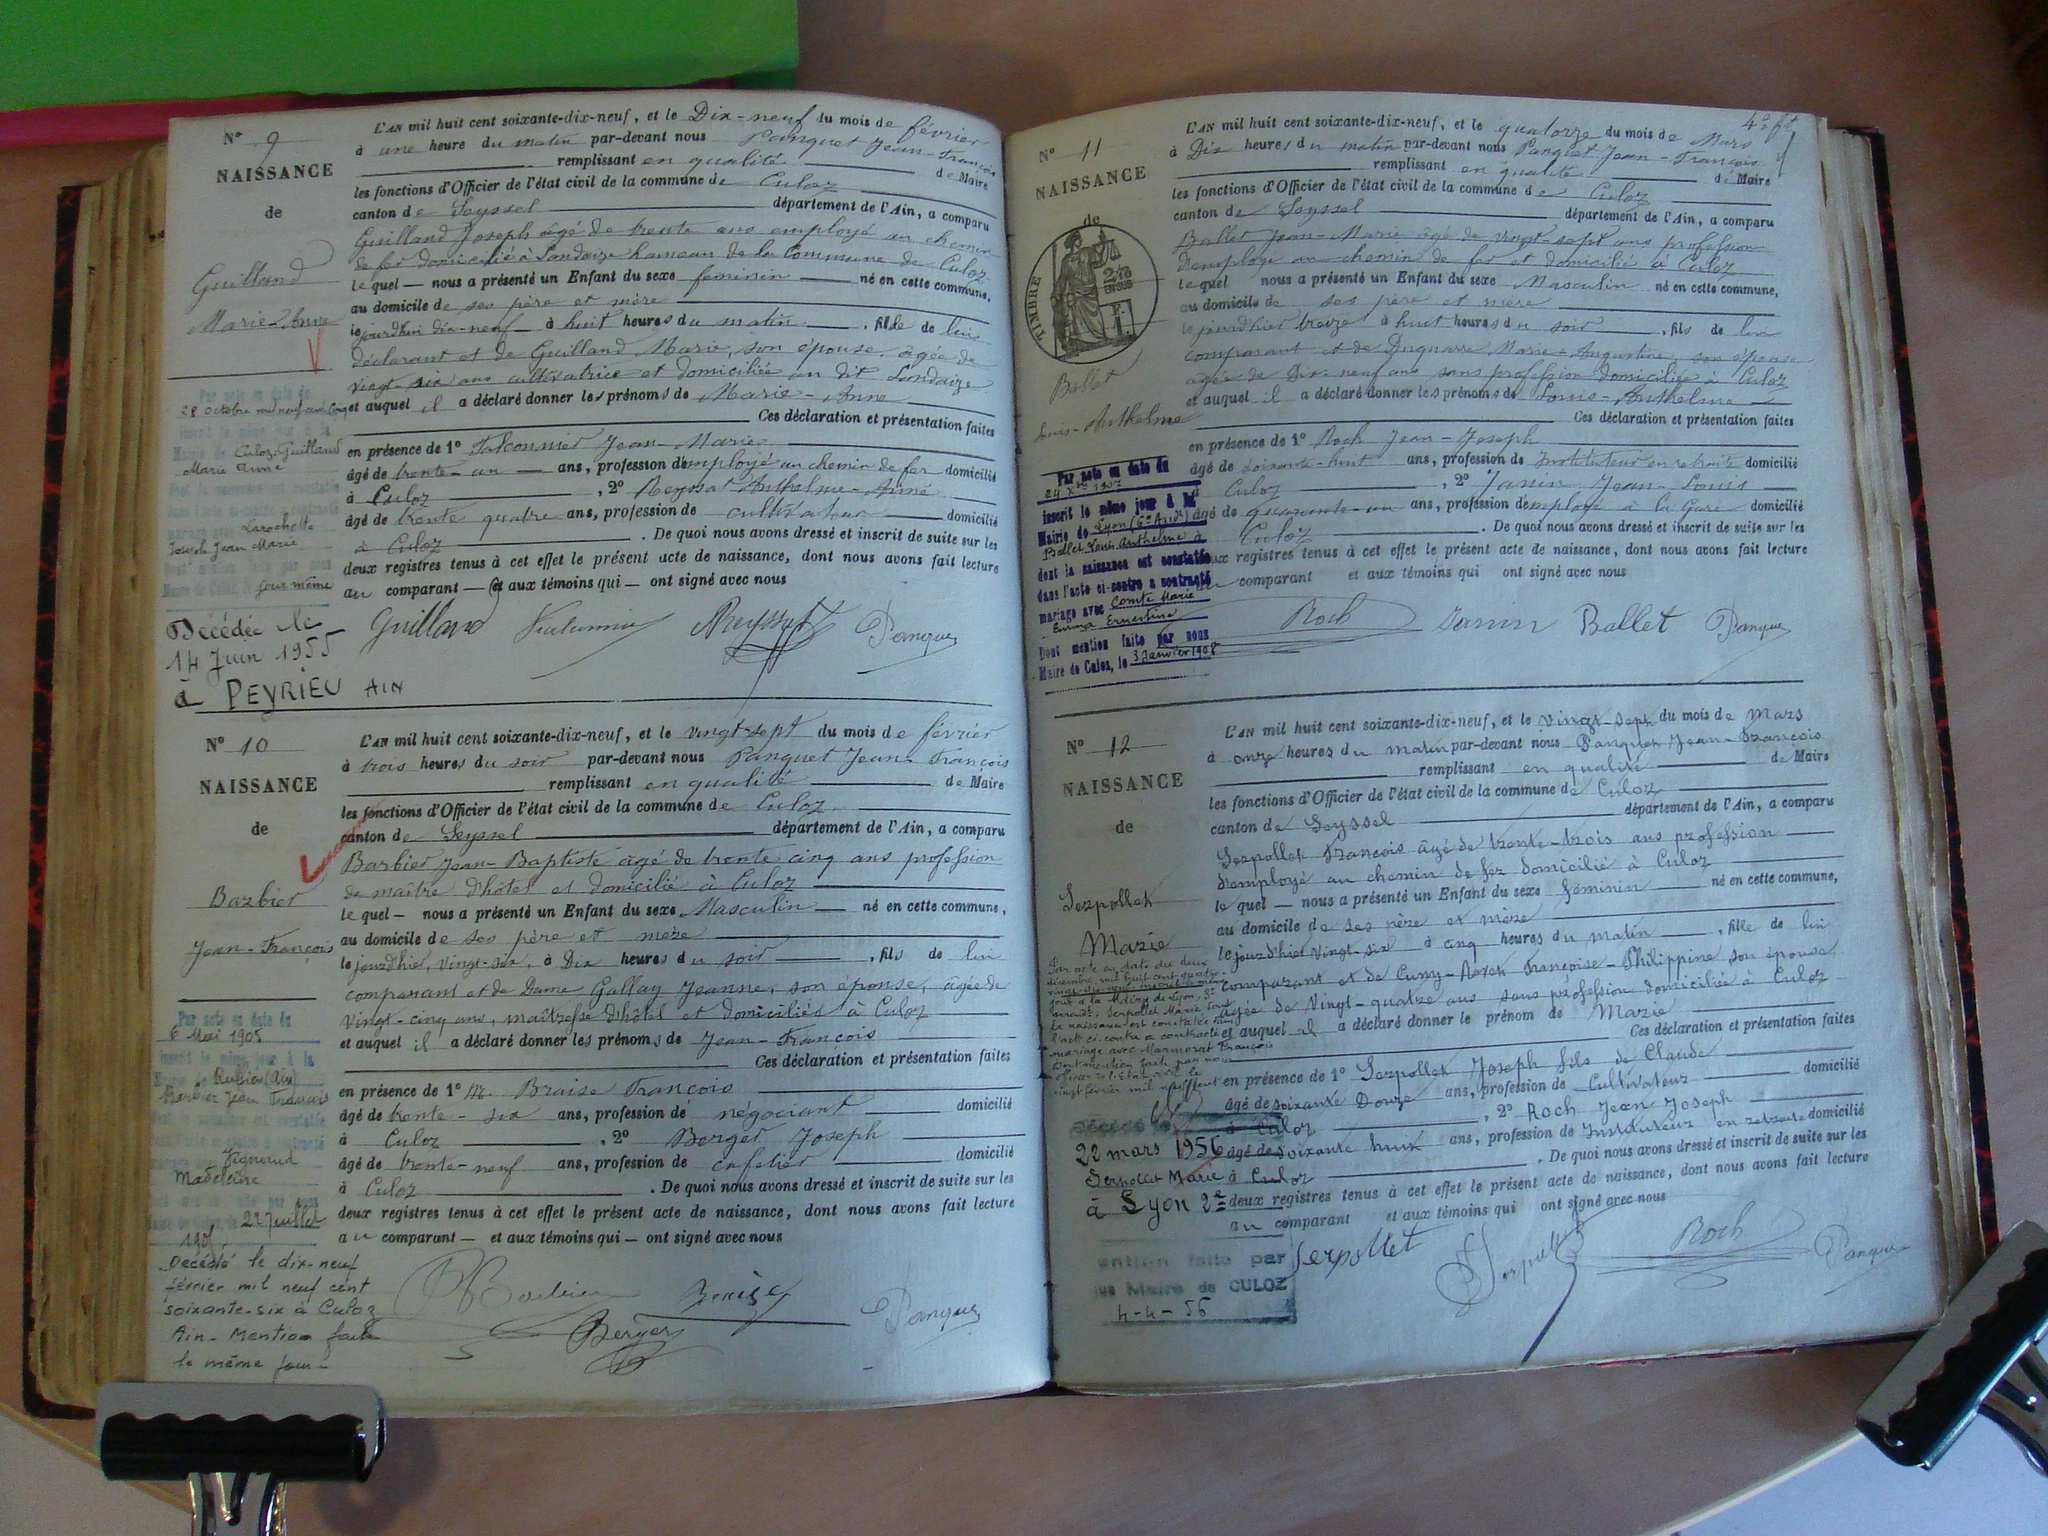 N° 9
NAISSANCE
de
Guilland
Marie-Anne
Par note en date du
28 octobre mil neuf cent cinq
Culoz Guilland
Marie Anne
Larochette
Joseph Jean Marie
jour même
Décédée le
14 Juin 1955
à PEYRIEU AIN
L'AN mil huit cent soixante-dix-neuf, et le Dix-neuf du mois de février
à une heure du matin par-devant nous Panquet Jean-François
remplissant en qualité de Maire
les fonctions d'Officier de l'état civil de la commune de Culoz
canton de Seyssel département de l'Ain, a comparu
Guilland Joseph âgé de trente ans employé au chemin
de fer domicilié à Landaize hameau de la Commune de Culoz
lequel — nous a présenté un Enfant du sexe féminin — né en cette commune,
au domicile de ses père et mère
lejourdhui dix-neuf à huit heures du matin, fille de lui
déclarant et de Guilland Marie, son épouse, âgée de
vingt-six ans cultivatrice et domiciliée au dit Landaize
et auquel il a déclaré donner les prénoms de Marie-Anne
Ces déclaration et présentation faites
en présence de 1° Falconnier Jean-Marie
âgé de trente-un — ans, profession d'employé au chemin de fer domicilié
à Culoz, 2° Reyssat Anthelme-Aimé
âgé de trente quatre ans, profession de cultivateur domicilié
à Culoz. De quoi nous avons dressé et inscrit de suite sur les
deux registres tenus à cet effet le présent acte de naissance, dont nous avons fait lecture
au comparant — et aux témoins qui — ont signé avec nous
Guilland Reyssat Panquet
N° 10
NAISSANCE
de
Barbier
Jean-François
Par note en date du
6 Mai 1905
inscrit le même jour à la
Ruffieu (Ain)
Barbier Jean François
Madeleine
22 Juillet
190
Décédé le dix-neuf
février mil neuf cent
soixante-six à Culoz
Ain - Mention faite
le même jour -
L'AN mil huit cent soixante-dix-neuf, et le vingt-sept du mois de février
à trois heures du soir par-devant nous Panquet Jean-François
remplissant en qualité de Maire
les fonctions d'Officier de l'état civil de la commune de Culoz
canton de Seyssel département de l'Ain, a comparu
Barbier Jean-Baptiste âgé de trente cinq ans profession
de maître d'hôtel et domicilié à Culoz
lequel — nous a présenté un Enfant du sexe Masculin — né en cette commune,
au domicile de ses père et mère
le jourd'hier, vingt-six, à Dix heures du soir, fils de lui
comparant et de Dame Gallay Jeanne, son épouse, âgée de
vingt-cinq ans, maîtresse d'hôtel et domiciliée à Culoz
et auquel il a déclaré donner les prénoms de Jean-François
Ces déclaration et présentation faites
en présence de 1° M. Braise François
âgé de trente-six ans, profession de négociant domicilié
à Culoz, 2° Berger Joseph
âgé de trente-neuf ans, profession de cafetier domicilié
à Culoz. De quoi nous avons dressé et inscrit de suite sur les
deux registres tenus à cet effet le présent acte de naissance, dont nous avons fait lecture
au comparant — et aux témoins qui — ont signé avec nous
Barbier Berger Panquet
N° 11
NAISSANCE
de
TIMBRE
Ballet
Louis-Anthelme
Par note en date du
24 Xbre 1907
inscrit le même jour à la
Mairie de Lyon (6e Arrt)
Ballet Louis Anthelme
dont la naissance est constatée
dans l'acte ci-contre a contracté
mariage avec Comte Marie
Emma Ernestine
Dont mention faite par nous
Maire de Culoz, le 3 Janvier 1908
L'AN mil huit cent soixante-dix-neuf, et le quatorze du mois de Mars
à Dix heures du matin par-devant nous Panquet Jean-François
remplissant en qualité de Maire
les fonctions d'Officier de l'état civil de la commune de Culoz
canton de Seyssel département de l'Ain, a comparu
Ballet Jean-Marie âgé de vingt-sept ans profession
d'employé au chemin de fer et domicilié à Culoz
lequel nous a présenté un Enfant du sexe Masculin né en cette commune,
au domicile de ses père et mère
le jourd'hier treize à huit heures du soir, fils de lui
comparant et de Marie-Augustine, son épouse
âgée de Dix-neuf ans sans profession domiciliée à Culoz
et auquel il a déclaré donner les prénoms de Louis-Anthelme
Ces déclaration et présentation faites
en présence de 1° Roch Jean-Joseph
âgé de soixante-huit ans, profession de Instituteur en retraite domicilié
à Culoz, 2° Janin Jean-Louis
âgé de quarante-un ans, profession d'employé à la Gare domicilié
à Culoz. De quoi nous avons dressé et inscrit de suite sur les
deux registres tenus à cet effet le présent acte de naissance, dont nous avons fait lecture
au comparant et aux témoins qui ont signé avec nous
Roch Janin Ballet Panquet
N° 12
NAISSANCE
de
Serpollet
Marie
22 mars 1956
Serpollet Marie
à Lyon 2e
mention faite par
Maire de CULOZ
4-4-56
L'AN mil huit cent soixante-dix-neuf, et le vingt-sept du mois de Mars
à onze heures du matin par-devant nous Panquet Jean-François
remplissant en qualité de Maire
les fonctions d'Officier de l'état civil de la commune de Culoz
canton de Seyssel département de l'Ain, a comparu
Serpollet François âgé de trente-trois ans profession
d'employé au chemin de fer domicilié à Culoz
lequel — nous a présenté un Enfant du sexe féminin — né en cette commune,
au domicile de ses père et mère
le jourd'hier vingt-six à cinq heures du matin, fille de lui
comparant et de Cuny-Roch Françoise-Philippine son épouse
âgée de Vingt-quatre ans sans profession domiciliée à Culoz
et auquel il a déclaré donner le prénom de Marie
Ces déclaration et présentation faites
en présence de 1° Serpollet Joseph fils de Claude
âgé de soixante Douze ans, profession de Cultivateur domicilié
à Culoz, 2° Roch Jean Joseph
âgé de soixante huit ans, profession de Instituteur en retraite domicilié
à Culoz. De quoi nous avons dressé et inscrit de suite sur les
deux registres tenus à cet effet le présent acte de naissance, dont nous avons fait lecture
au comparant et aux témoins qui ont signé avec nous
Serpollet Serpollet Roch Panquet